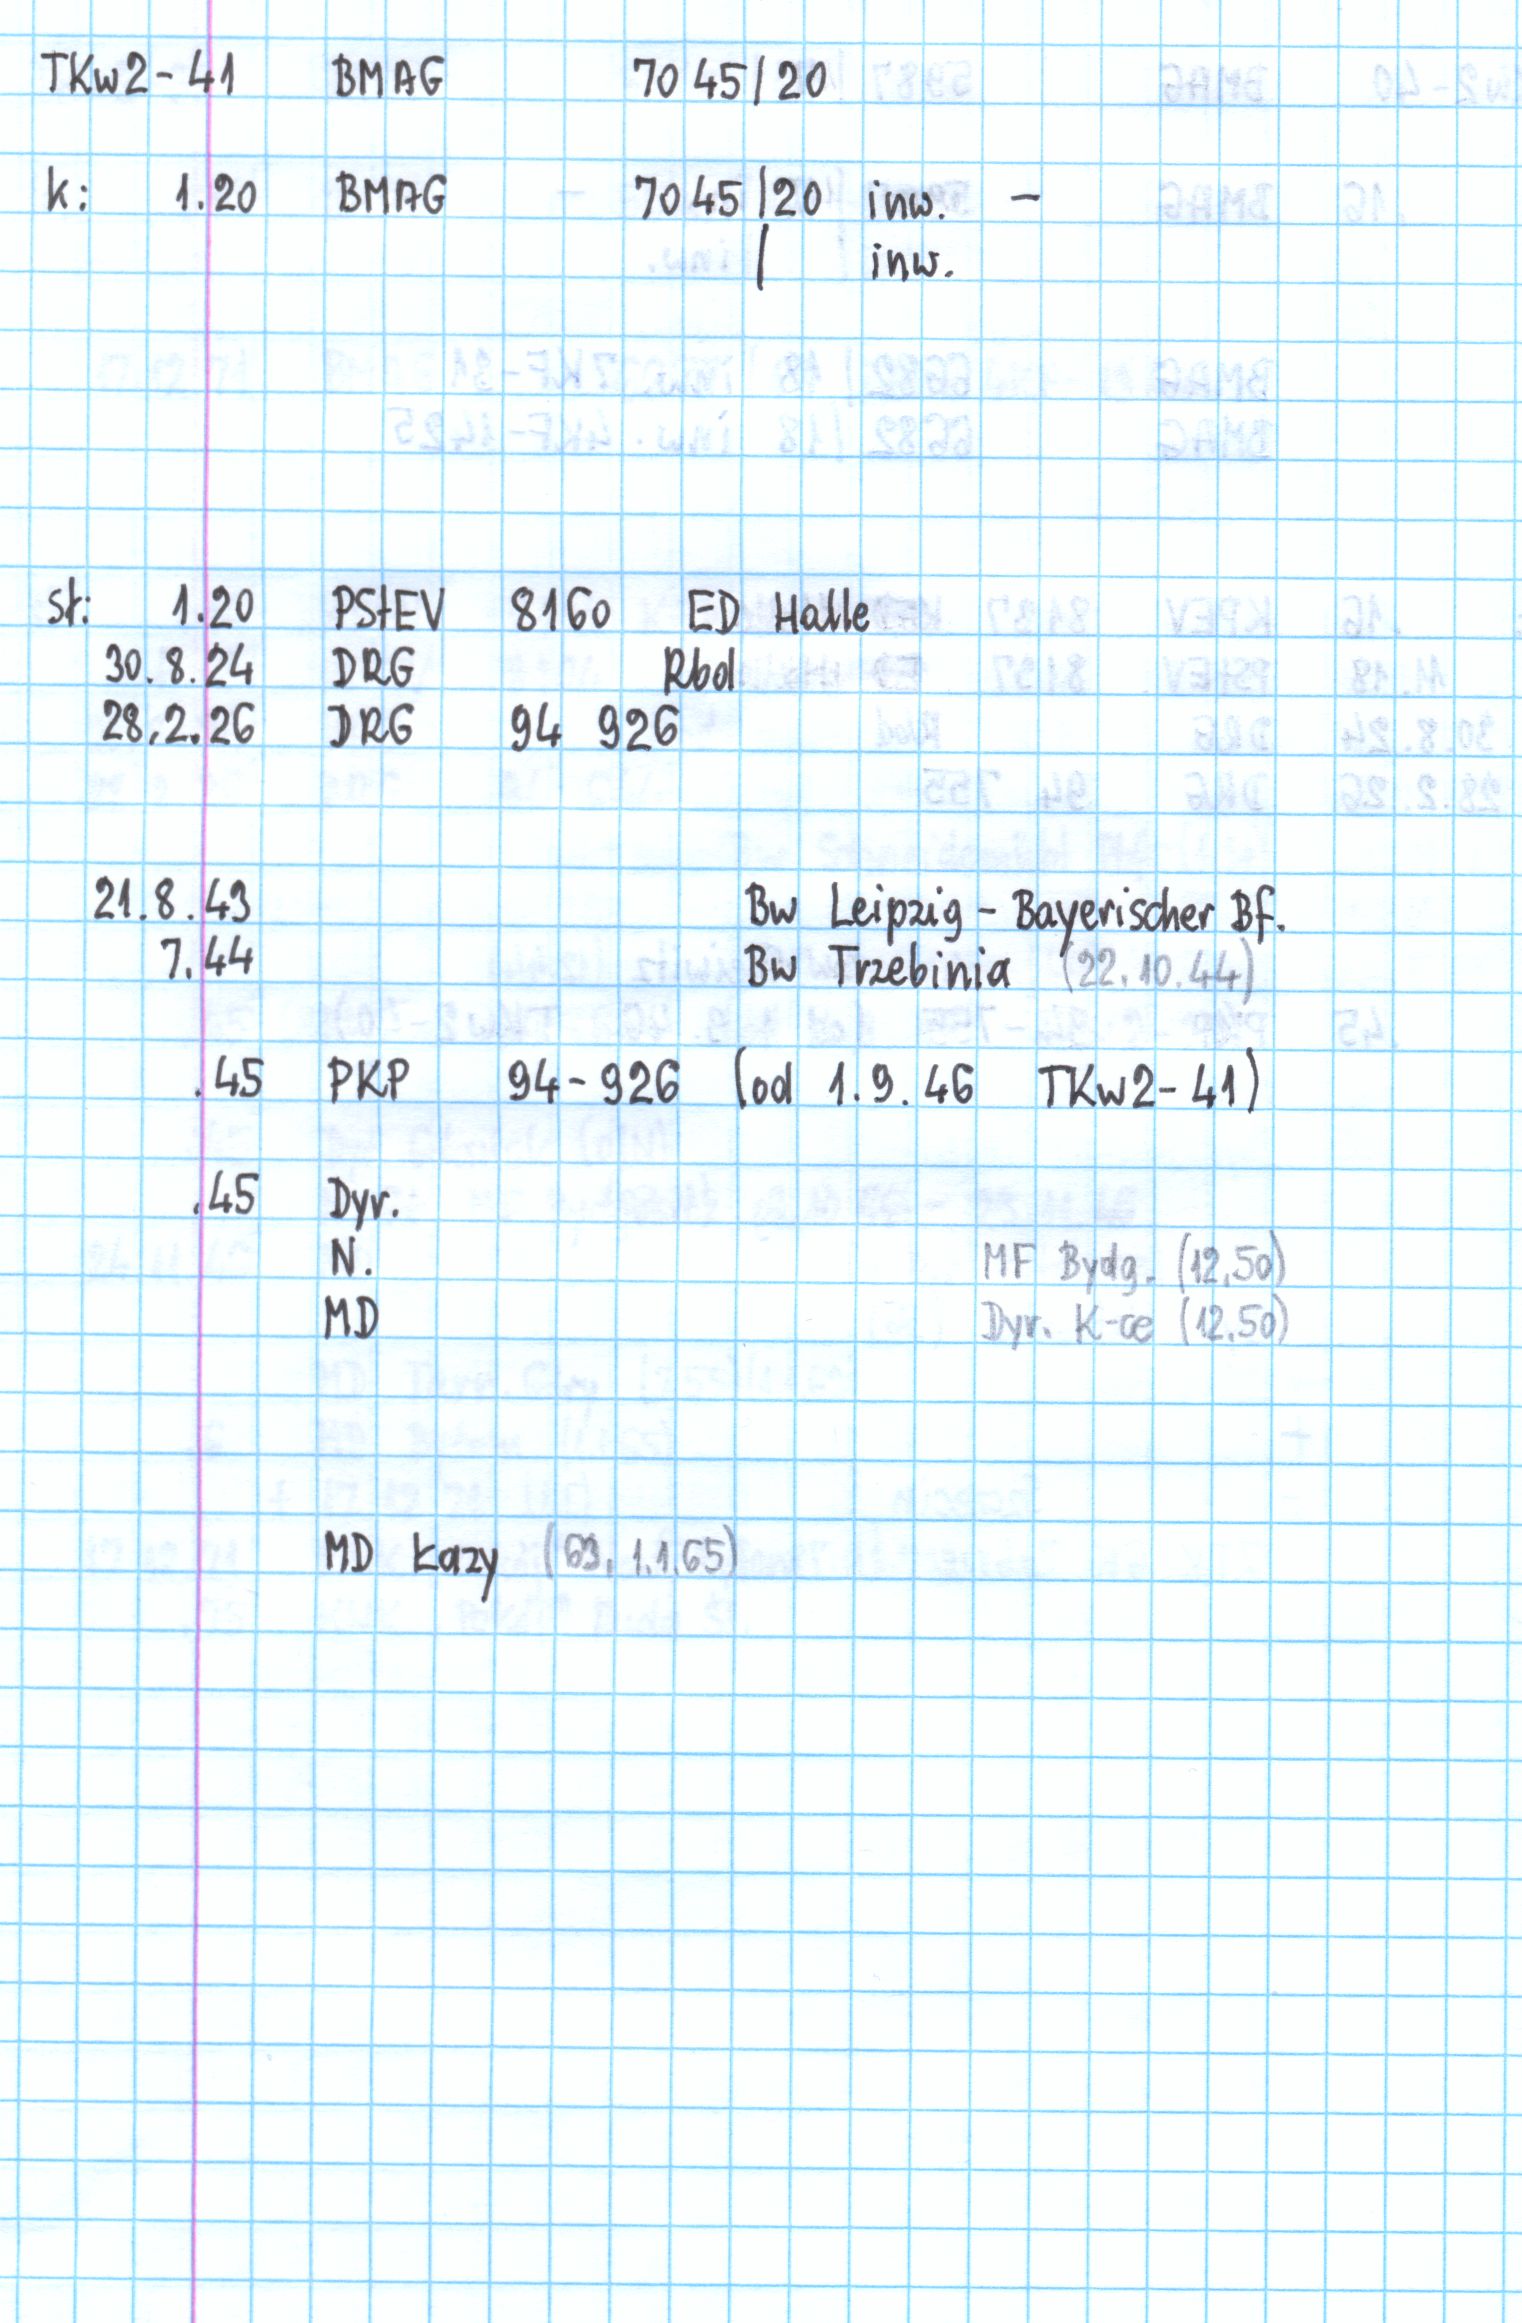 TKw2-41 BMAG 7045/20
k: 1.20 BMAG 7045/20 inw. -
/ inw.
st: 1.20 PStEV 8160 ED Halle
30.8.24 DRG Rbd
28.2.26 DRG 94 926
21.8.43 Bw Leipzig - Bayerischer Bf.
7.44 Bw Trzebinia (22.10.44)
.45 PKP 94-926 (od 1.9.46 TKw2-41)
.45 Dyr.
N. MF Bydg. (12.50)
MD Dyr. K-ce (12.50)
MD Łazy (63, 1.1.65)